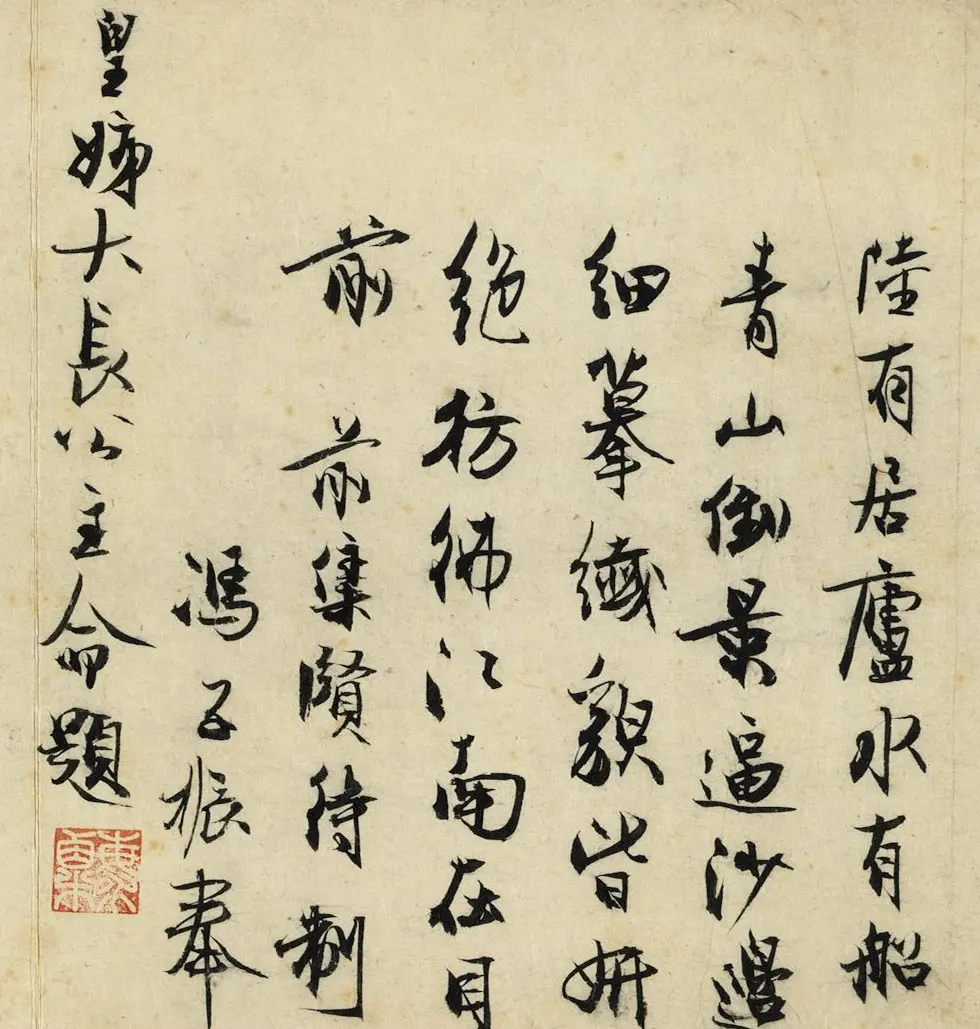 陸有居廬水有船
青山倒景逼沙邊
細摹纎貌皆妍
絶彷彿江南在目
前　前集賢待制
馮子振奉
皇姊大長公主命題